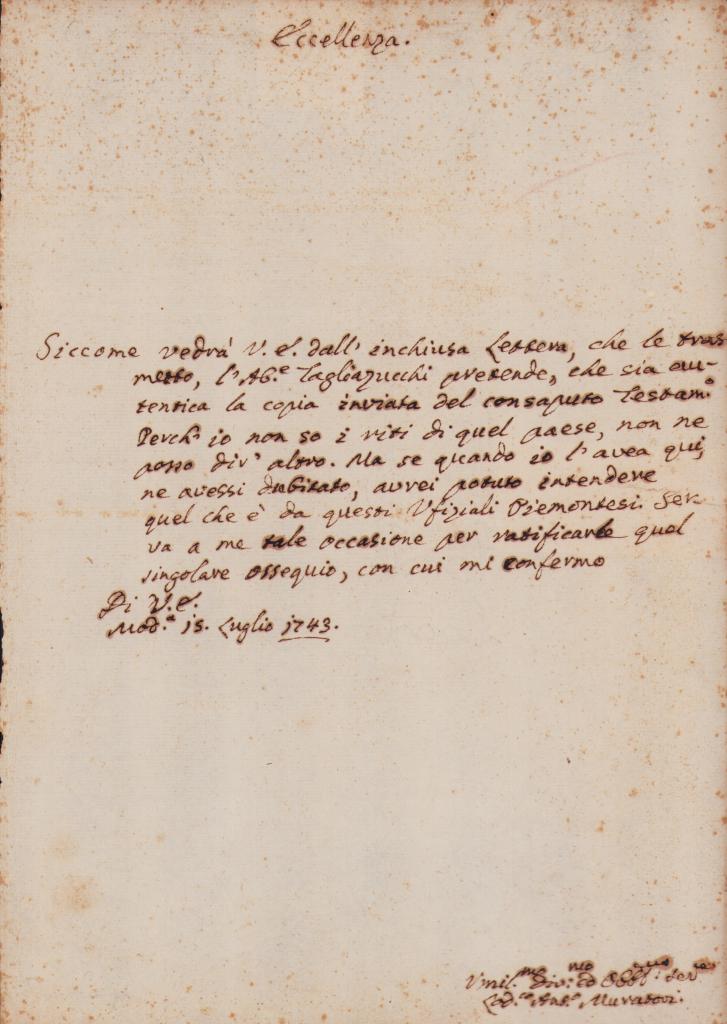 Eccellenza.
Siccome vedrà V. E. dall' inchiusa Lettera, che le tras
metto, l'Ab.e Tagliazucchi pretende, che sia au-
tentica la copia inviata del consaputo Testam.o
Perch' io non so i riti di quel paese, non ne
posso dir' altro. Ma se quando io l'avea qui,
ne avessi dubitato, avrei potuto intendere
quel che è da questi Ufiziali Piemontesi. Ser
va a me tale occasione per ratificarle quel
singolare ossequio, con cui mi confermo
Di V. E.
Mod.a 15. Luglio 1743.
Umil.mo Div.mo ed Obb.mo Ser.re
Lod.co Ant.o Muratori.